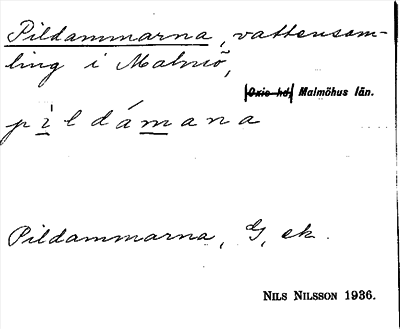 Pildammarna, vattensam-
ling i Malmö,
Oxie hd, Malmöhus län.
pìldámana
Pildammarna, G, ek.
NILS NILSSON 1936.